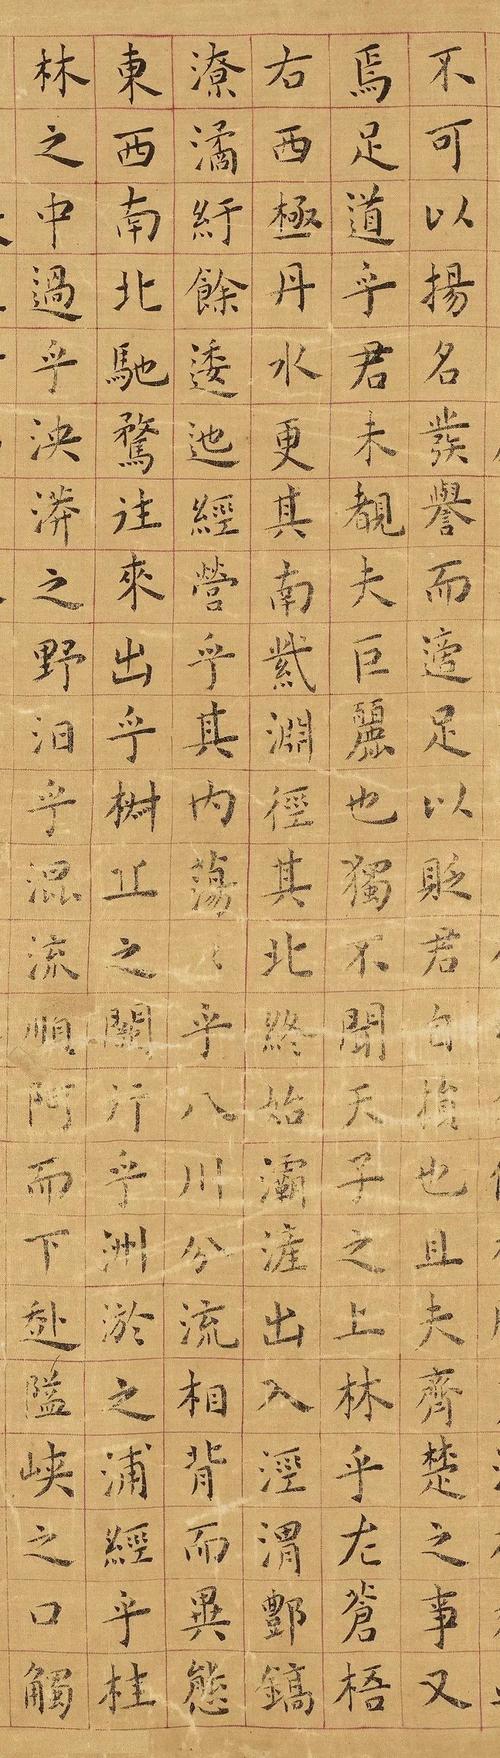 不可以揚名發譽而適足以貶君自損也且夫齊楚之事又
焉足道乎君未覩夫巨麗也獨不聞天子之上林乎左蒼梧
右西極丹水更其南紫淵徑其北終始灞滻出入涇渭酆鎬
潦潏紆餘逶迆經營乎其內蕩々乎八川分流相背而異態
東西南北馳騖往來出乎椒丘之闕行乎洲淤之浦經乎桂
林之中過乎泱漭之野汩乎混流順阿而下赴隘峽之口觸